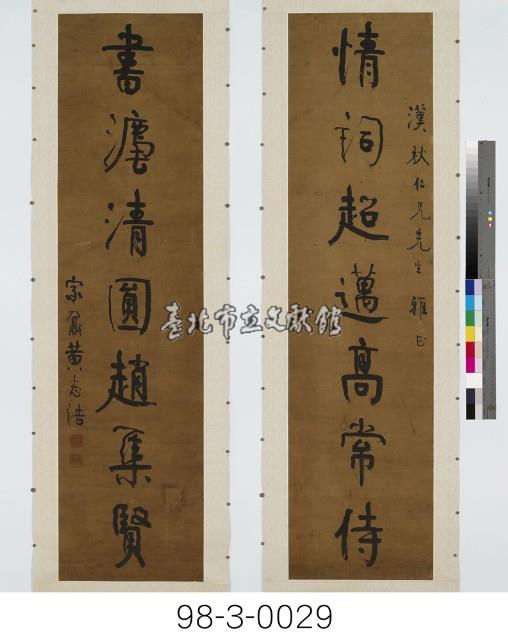 漢秋仁兄先生 雅正
情詞超邁高常侍
書瀍清圓趙集賢
宗爵黃志浩
臺北市立文獻館
98-3-0029